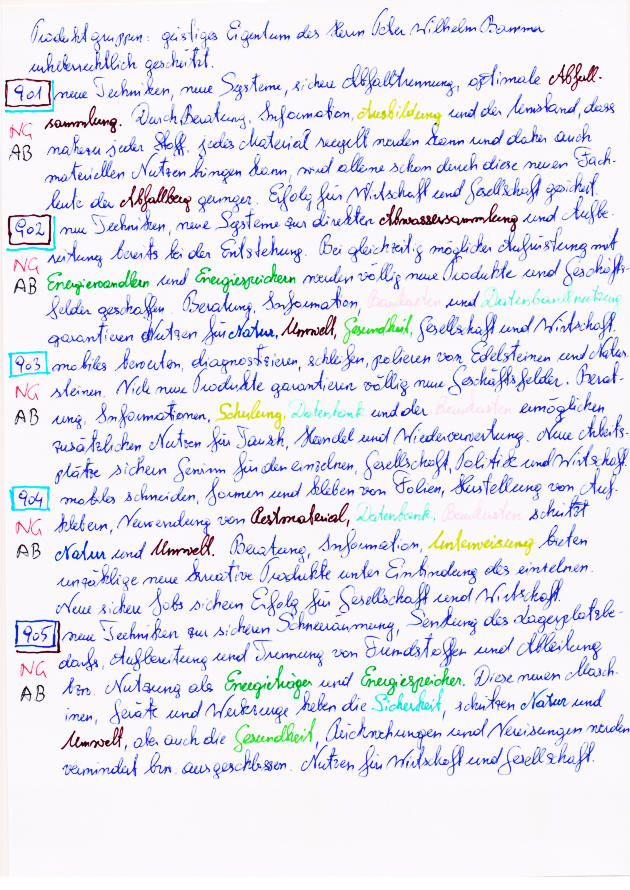 Produktgruppen: geistiges Eigentum des Herrn Peter Wilhelm Bammer
urheberrechtlich geschützt.
901 neue Techniken, neue Systeme, sichere Abfalltrennung, optimale Abfall-
NG sammlung. Durch Beratung, Information, Ausbildung und der Umstand, dass
AB nahezu jeder Stoff, jedes Material recycelt werden kann und daher auch
materiellen Nutzen bringen kann, wird alleine schon durch diese neuen Fach-
leute der Abfallberg geringer. Erfolg für Wirtschaft und Gesellschaft gesichert.
902 neue Techniken, neue Systeme zur direkten Abwassersammlung und Aufbe-
NG reitung bereits bei der Entstehung. Bei gleichzeitig möglicher Aufrüstung mit
AB Energiewandlern und Energiespeichern werden völlig neue Produkte und Geschäfts-
felder geschaffen. Beratung, Information, Baukasten und Datenbanknutzung
garantieren Nutzen für Natur, Umwelt, Gesundheit, Gesellschaft und Wirtschaft.
903 mobiles bewerten, diagnostizieren, schleifen, polieren von Edelsteinen und Natur-
NG steinen. Viele neue Produkte garantieren völlig neue Geschäftsfelder. Berat-
AB ung, Informationen, Schulung, Datenbank und der Baukasten ermöglichen
zusätzlichen Nutzen für Tausch, Handel und Wiederverwertung. Neue Arbeits-
plätze sichern Gewinn für den einzelnen, Gesellschaft, Politik und Wirtschaft.
904 mobiles schneiden, formen und kleben von Folien, Herstellung von Auf-
NG klebern, Verwendung von Restmaterial, Datenbank, Baukasten schützt
AB Natur und Umwelt. Beratung, Information, Unterweisung bieten
unzählige neue kreative Produkte unter Einbindung des einzelnen.
Neue sichere Jobs sichern Erfolg für Gesellschaft und Wirtschaft.
905 neue Techniken zur sicheren Schneeräumung, Senkung des Lagerplatzbe-
NG darfs, Aufbereitung und Trennung von Fremdstoffen und Ableitung
AB bzw. Nutzung als Energieträger und Energiespeicher. Diese neuen Masch-
inen, Geräte und Werkzeuge heben die Sicherheit, schützen Natur und
Umwelt, aber auch die Gesundheit, Reichrechungen und Vereisungen werden
vermindert bzw. ausgeschlossen. Nutzen für Wirtschaft und Gesellschaft.